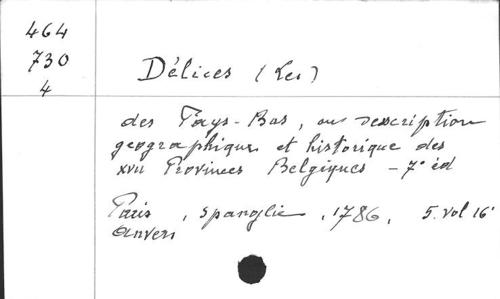 464
730
4
Délices (Les)
des Pays-Bas, ou description
geographique et historique des
XVII Provinces Belgiques - 7° éd
Paris, Spanoghe, 1786, 5 vol 16°
Anvers